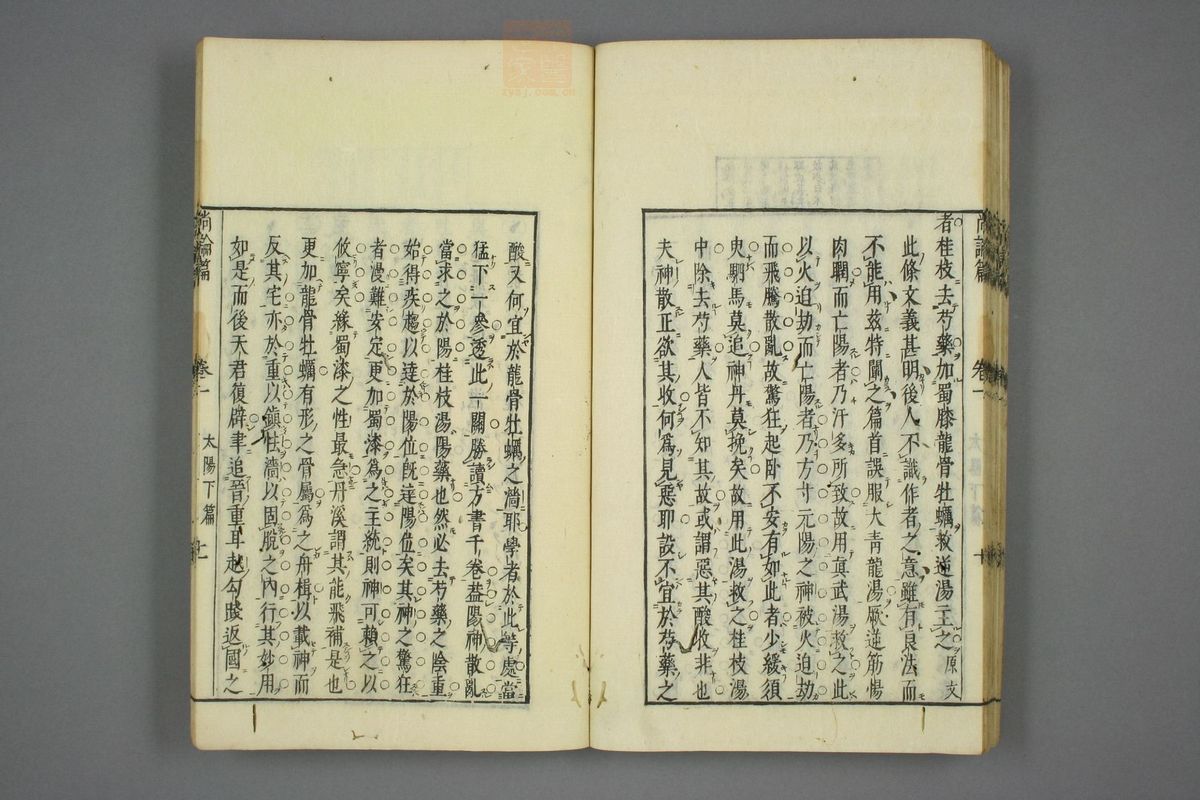 者桂枝去芍藥加蜀膝龍骨牡蠣救逆湯主之原文
此條文義甚明後人不識作者之意雖有良法而
不能用茲特關之篇首誤服大青龍湯厥逆筋惕
肉瞤而亡陽者乃汗多所致故用真武湯救之此
以火迫劫而亡陽者乃方寸元陽之神被火迫劫
而飛騰散亂故驚狂起卧不安有如此者少緩須
臾駟馬莫追神丹莫挽矣故用此湯救之桂枝湯
中除去芍藥人皆不知其故或謂惡其酸收非也
夫神散正欲其收何爲見惡耶設不宜於芍藥之
尚論篇 卷一 太陽下篇 十
酸又何宜於龍骨牡蠣之濇耶學者於此等處當
猛下一參透此一關勝讀方書千卷葢陽神散亂
當求之於陽桂枝湯陽藥也然必去芍藥之陰重
始得疾趨以達於陽位旣達陽位矣其神之驚狂
者漫難安定更加蜀漆爲之主統則神可賴之以
攸寧矣緣蜀漆之性最急丹溪謂其能飛補是也
更加龍骨牡蠣有形之骨屬爲之舟楫以載神而
反其宅亦於重以鎮怯濇以固脫之內行其妙用
如是而後天君復辟聿追晉重耳越勾踐返國之
尚論篇 卷一 太陽下篇 十一
zysj.com.cn